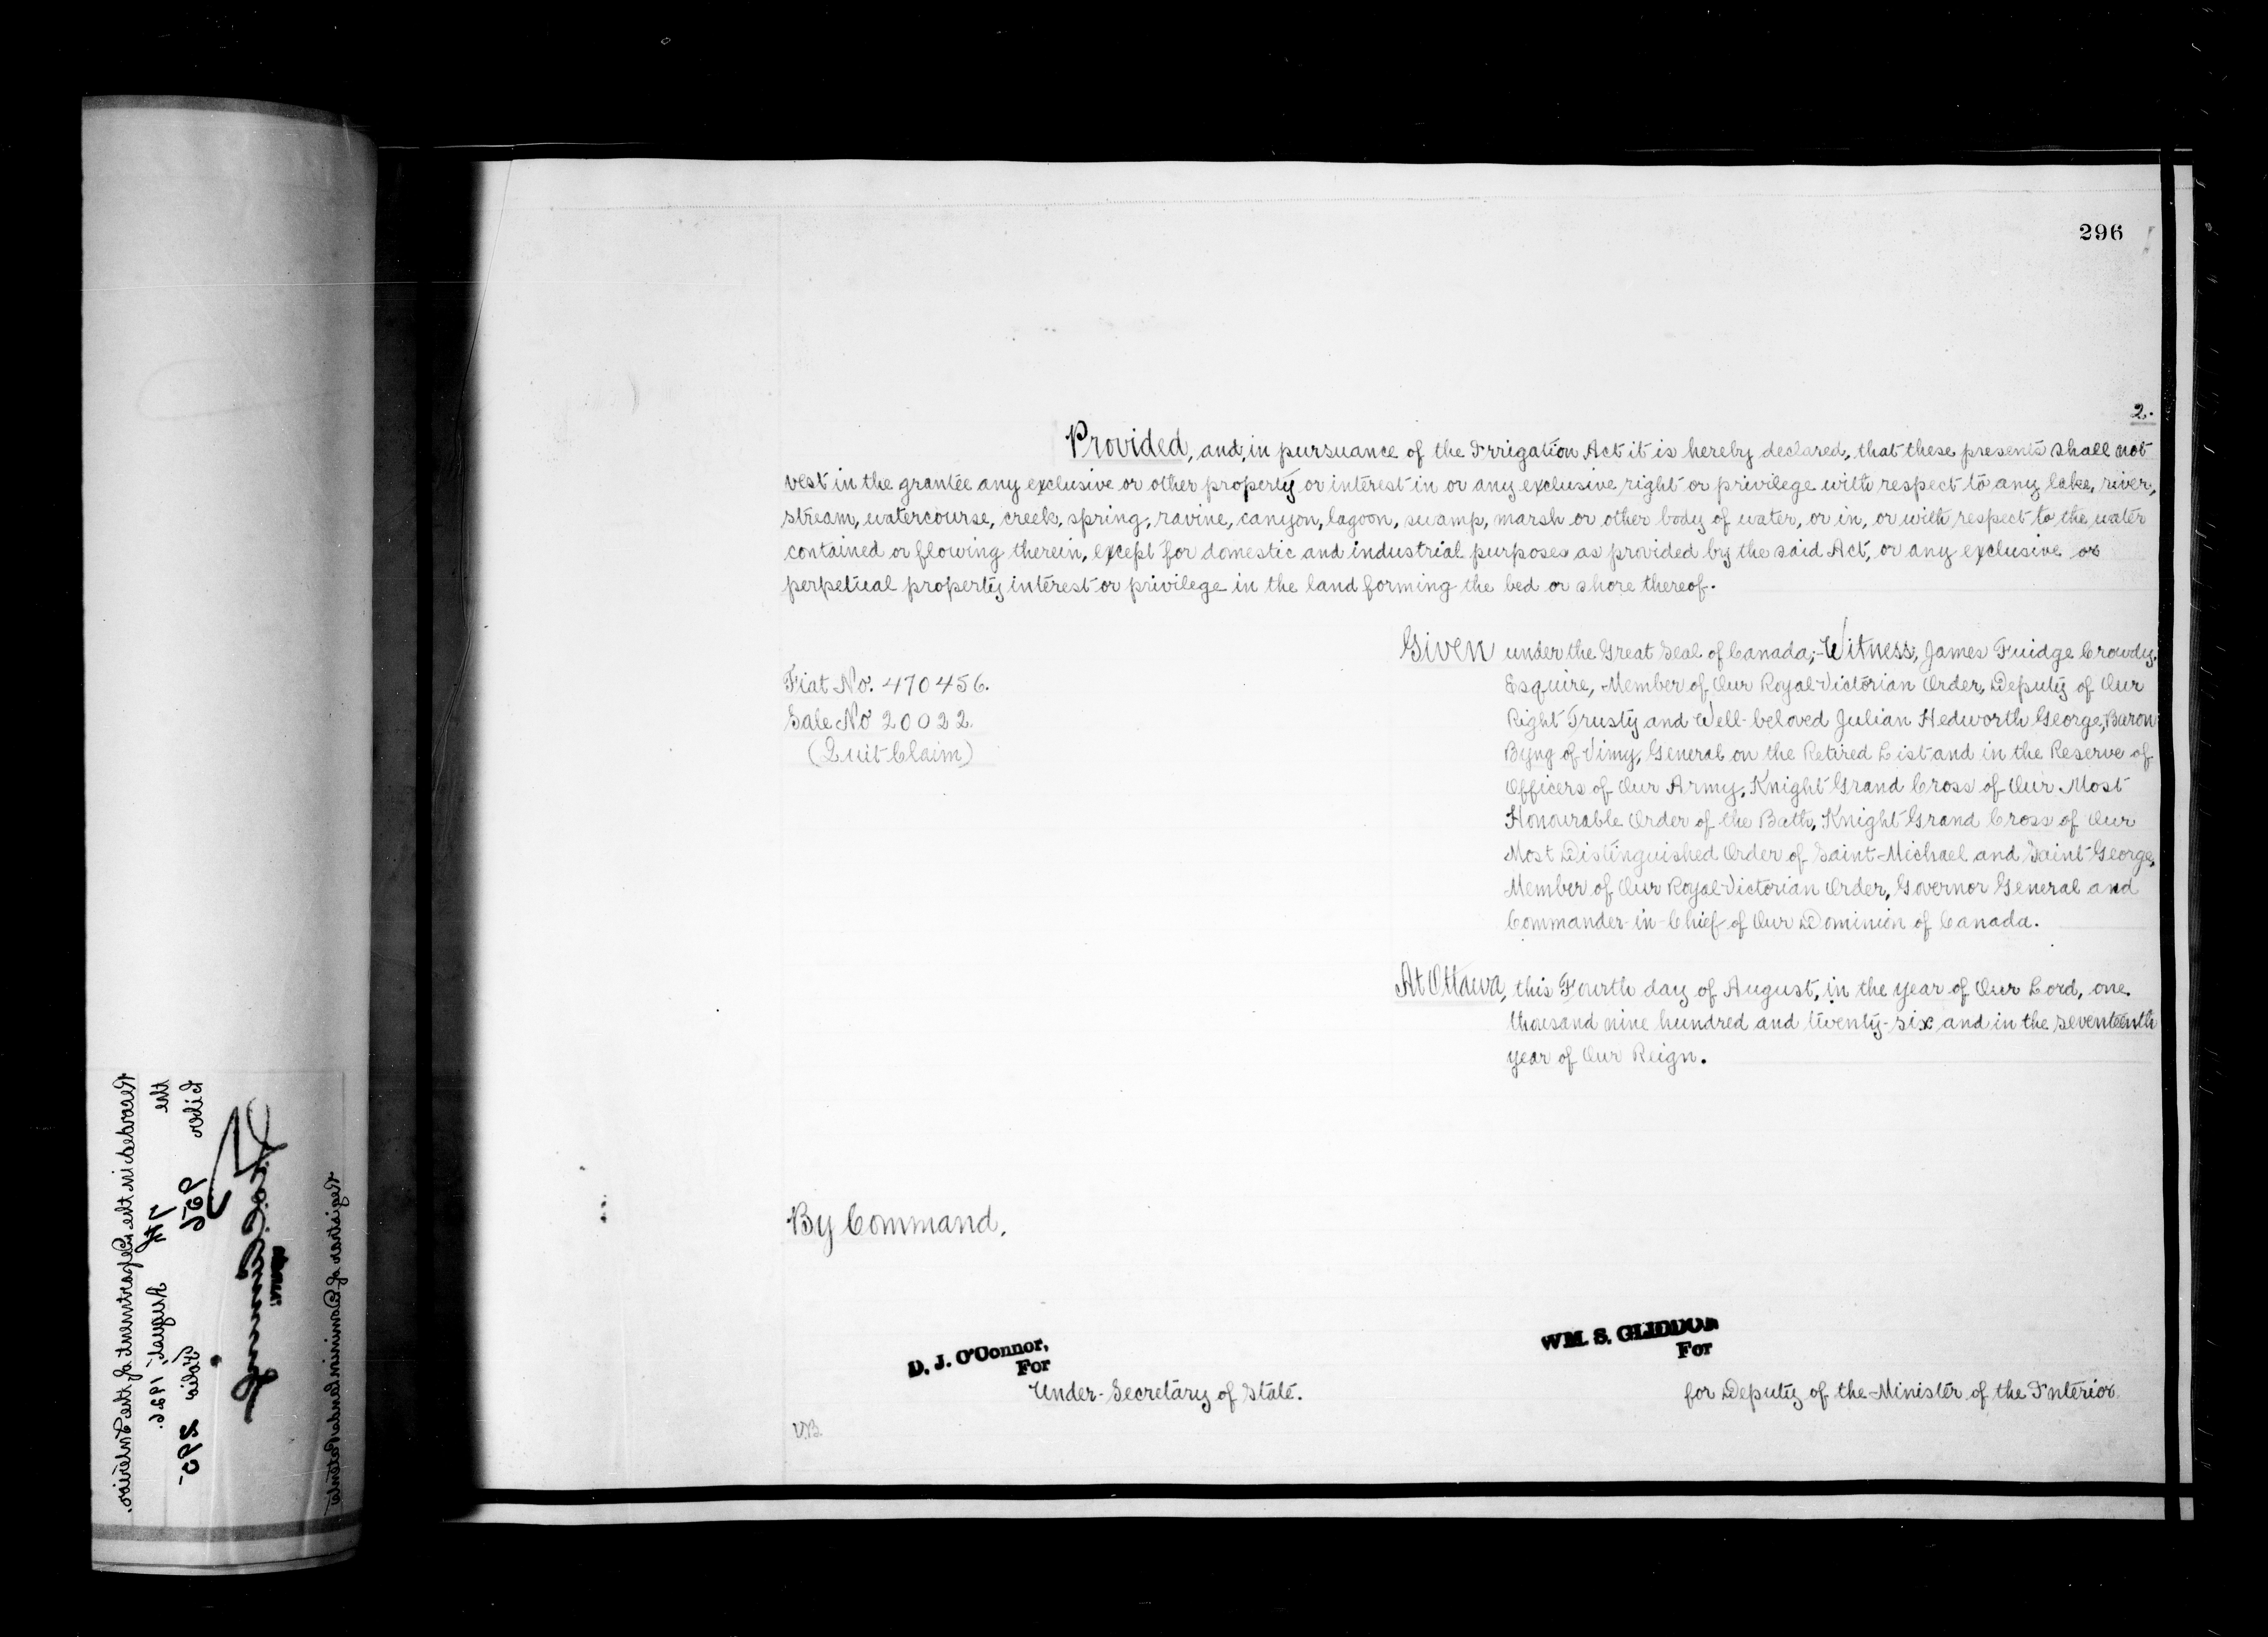 296
2.
Provided, and, in pursuance of the Irrigation Act it is hereby declared, that these presents shall not
vest in the grantee any exclusive or other property or interest in or any exclusive right or privilege with respect to any lake, river,
stream, watercourse, creek, spring, ravine, canyon, lagoon, swamp, marsh or other body of water, or in, or with respect to the water
contained or flowing therein, except for domestic and industrial purposes as provided by the said Act, or any exclusive or
perpetual property interest or privilege in the land forming the bed or shore thereof.
Fiat No. 470456.
Sale No 20022.
(Quit Claim)
Given under the Great Seal of Canada;- Witness, James Fuidge Crowdy,
Esquire, Member of Our Royal Victorian Order, Deputy of Our
Right Trusty and Well-beloved Julian Hedworth George, Baron
Byng of Vimy, General on the Retired List and in the Reserve of
Officers of Our Army, Knight Grand Cross of Our Most
Honourable Order of the Bath, Knight Grand Cross of Our
Most Distinguished Order of Saint Michael and Saint George,
Member of Our Royal Victorian Order, Governor General and
Commander-in-Chief of Our Dominion of Canada.
At Ottawa, this Fourth day of August, in the year of Our Lord, one
thousand nine hundred and twenty-six and in the seventeenth
year of Our Reign.
By Command,
D. J. O'Connor,
For
Under-Secretary of State.
WM. S. GLIDDON
For
for Deputy of the Minister of the Interior.
V.B.
Recorded in the Department of the Interior.
the 7th August, 1926.
Liber 956 Folio 295
Registrar of Dominion Lands Patents